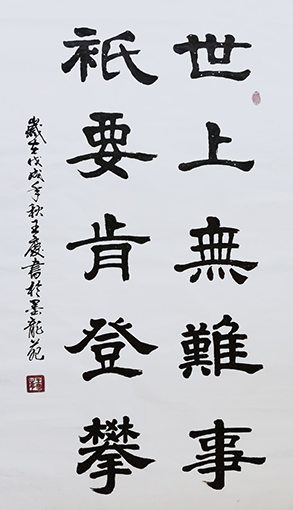 世上無難事
衹要肯登攀
歲在戊戌年秋王慶書於墨龍苑